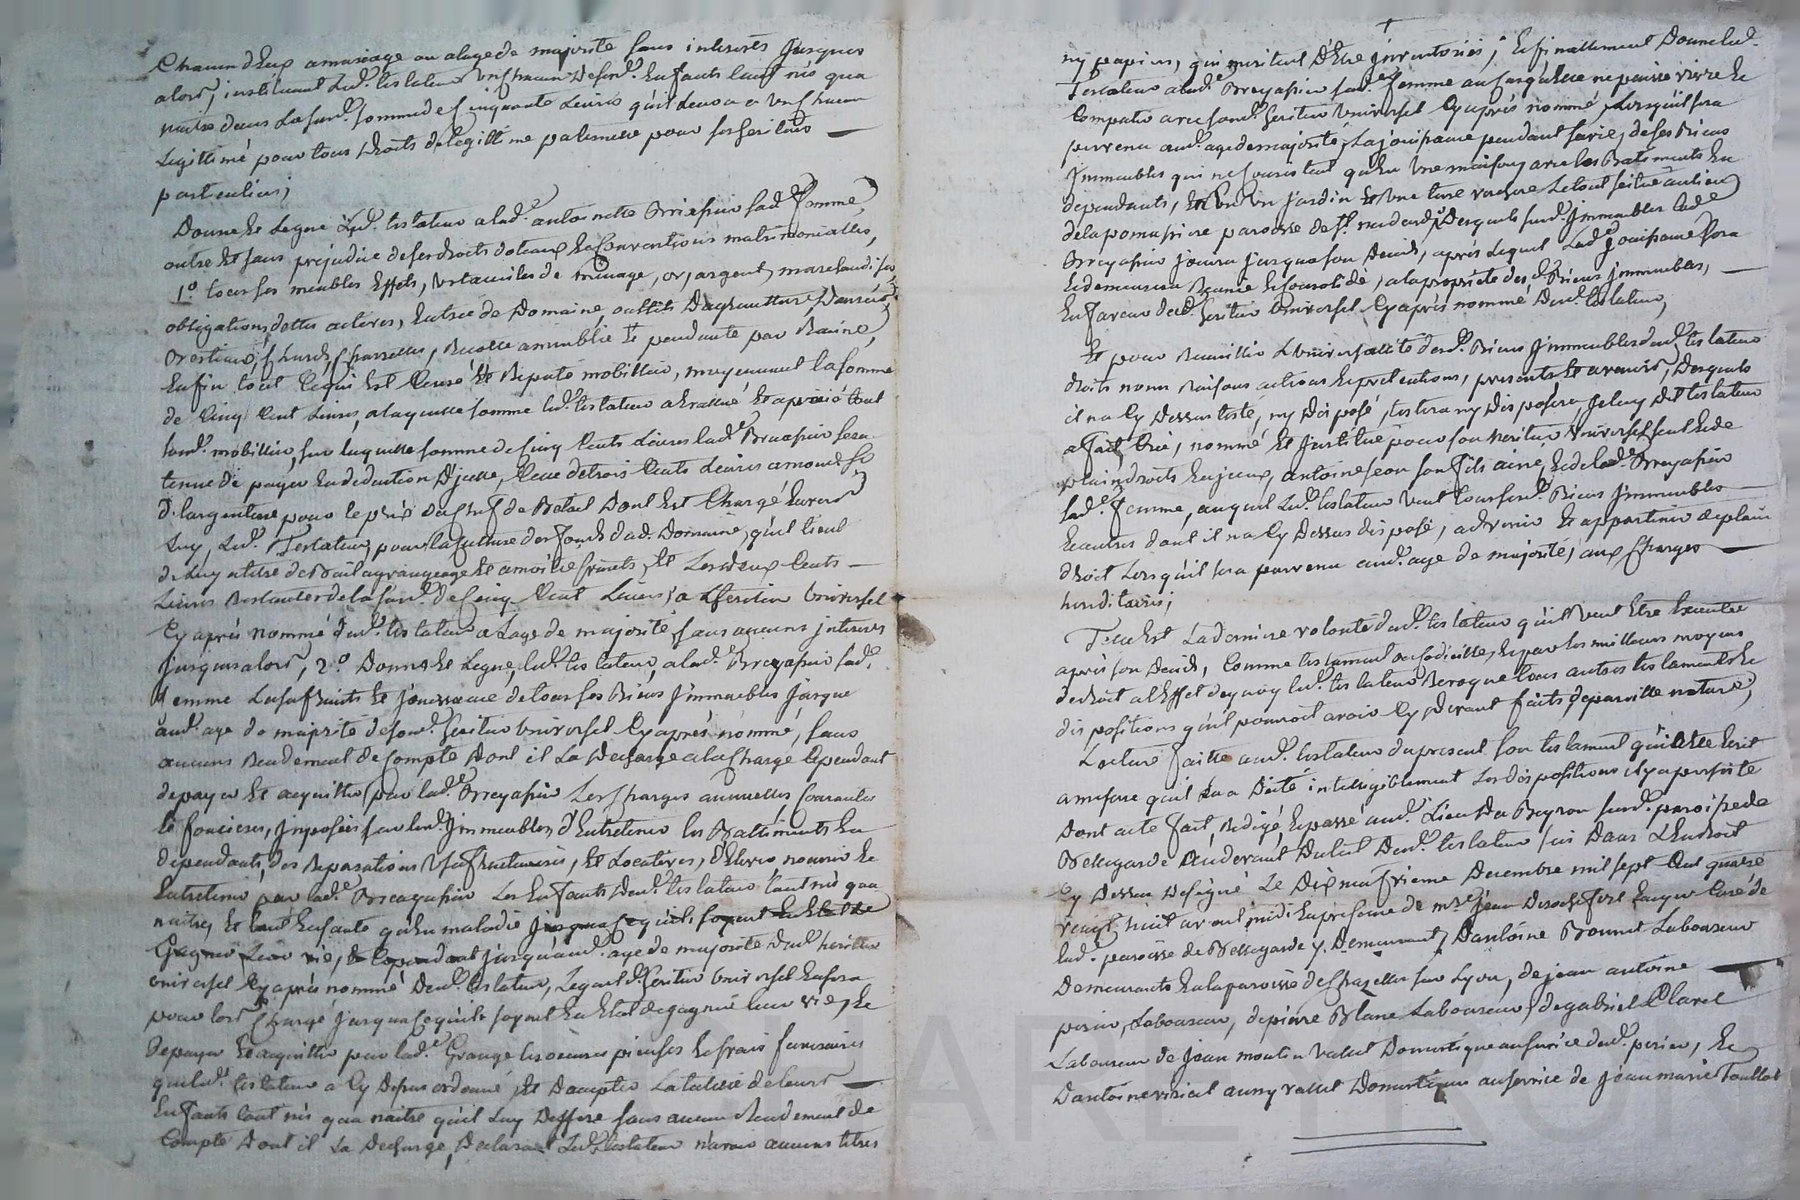 Chacun d'Eux a mariage ou alagede majorité sans interets Jusques
alors, instituant Led. testateur Unchacun Desesd. Enfants tant nés qua
naitre dans Lasusd. somme de Cinquante Livres qu'il Leur a Unchacun
Legittimé pour tous Droits delegittime paternelle pour ses heritiers
particuliers,
Donne Et Legue Led. testateur a lad.e antoinette sad.e femme,
outre Et sans préjudice deses droits dotaux Et Conventions matrimonialles,
1.o tous ses meubles Effets, Ustanciles de menage, or, argent, marchandises
obligations, dettes actives, Entrée de Domaine, outtils Dagriculture, Danrées,
Bestiaux, Chards, Charrettes, Recolte ameublie Et pendante par Racine,
Enfin tout Cequi Est Censé Et Reputé mobillier, moyennant la somme
de Cinq Cent Livres, alaquelle somme led. testateur a Evalué Et aprecié tout
sond. mobillier, sur laquelle somme de Cinq Cents Livres lad.e sera
tenue de payer En deduction D'jcelle, Celle detrois Cents Livres a
D. largentiere pour le prix du Cheptel de Betail Dont Est Chargé Envers
Luy, Led. Testateur, pour la Culture des fonds dud. Domaine, qu'il tient
de Luy atitre de Bail agrangeage Et amoitié fruits, Et Les deux Cents
Livres Restantes de la susd. de Cinq Cent Livres, a Lheritier Universel
Cy après nommé dud. testateur a Lage de majorité sans aucuns jnterets
Jusques alors, 2.o Donne Et Legue, led. testateur, a lad.e sad.e
femme Lusufruits Et Jouissance de tous ses Biens Jmmeubles Jusque
aud. age de majorité de sond. heritier Universel Cy après nommé, sans
aucuns Rendement de Compte Dont il La Decharge alaCharge Cependant
depayer Et acquitter par lad.e Les Charges annuelles Courantes
Et foncieres, Jmposées sur lesd. Jmmeubles, d'Entretenir les Battiments En
dependants, des Reparations Usufructuaires, Et Locatives, d'Elever nourrir Et
Entretenir par lad.e Les Enfants dud. testateur tant nés qua
naitre, Et tant Ensanté qu'En maladie Jusqua Cequ'ils soyent En Etat de
Gagner Leur vie, Et Cependant jusqu'aud. age de majorité dud. heritier
universel Cy après nommé Dud. testateur, Lequel d. heritier Universel En sera
pour lors Chargé Jusqua Cequ'ils soyent En Etat de gagner leur vie, Et
Depayer Et acquitter par lad.e Grange les oeuvres pieuses Et frais funeraires
que led. testateur a Cy Dessus ordonné, Et Daccepter La tutelle de leurs
Enfants tant nés qua naitre qu'il Luy Deffere sans aucun Rendement de
Compte Dont il La Decharge, Declarant Led. testateur n'avoir aucuns titres
ny papiers, qui meritent D'Etre jnventoriés, Et finallement Donne led.
Testateur a lad.e sad.e femme au Cas qu'Elle ne puisse vivre Et
Compatir avec sond. heritier Universel Cy après nommé, Lorsqu'il sera
parvenu aud. age de majorité, La jouissance pendant sa vie, de ses Biens
Jmmeubles qui ne Consistent qu'En Une maison avec les Batiments En
dependants, Et En Un Jardin Et Une terre verchere Le tout situé au lieu
de la pomassiere paroisse de St. medard, Desquels susd. Jmmeubles lad.e
jouira jusqua son Deces, après Lequel Lad.e Jouissance sera
Et demeurera Reunie Et Consolidé, a la proprieté desd. Biens jmmeubles,
En faveur dud. heritier Universel Cy après nommé Dud. testateur,
Et pour Recueillir Luniversallité desd. Biens Jmmeubles dud. testateur
droits noms Raisons actions Et pretentions, presents Et avenir, Desquels
il na Cy Dessus testé, ny Disposé, testera ny Disposera, Jceluy Dit testateur
a fait Créé, nommé Et Jnstitué pour son heritier Universel seul Et de
plain droits En jceux, antoine jean son fils ainé, Et de lad.e
sad.e femme, auquel Led. testateur Veut tous sesd. Biens Jmmeubles
Et autres dont il na Cy Dessus disposé, advenir Et appartenir de plain
droit Lorsqu'il sera parvenu aud. age de majorité, aux Charges
hereditaires,
Telle Est La derniere volonté dud. testateur qu'il Veut Etre Executée
après son Deces, Comme testament ou Codicille, Et par les meilleurs moyens
de droit a l'Effet de quoy led. testateur Revoque tous autres testaments Et
dispositions qu'il pourroit avoir Cy Devant faits, depareille nature,
Lecture faitte aud. testateur du present son testament qu'il a Eté Ecrit
amesure qu'il La Dicté intelligiblement Les dispositions il y a persisté
Dont acte fait, Redigé, Et passé aud. Lieu Du Beyron susd. paroisse de
Bellegarde Audevant Du Lit Dud. testateur sis Dans L'Endroit
Cy Dessus Designé Le Dix neufvieme Decembre mil sept Cent quatre
vingt huit avant midi En presence de m.re jean Curé de
lad. paroisse de Bellegarde y Demeurant, D'antoine Bonnet Laboureur
Demeurants En la paroisse de Chazelles sur Lyon, de jean antoine
perier, Laboureur, de pierre Blanc Laboureur, de gabriel Clavel
Laboureur de jean moulin Valet Domestique au service dud. perier, Et
D'antoine aussy valet Domestique au service de jean marie Toullot